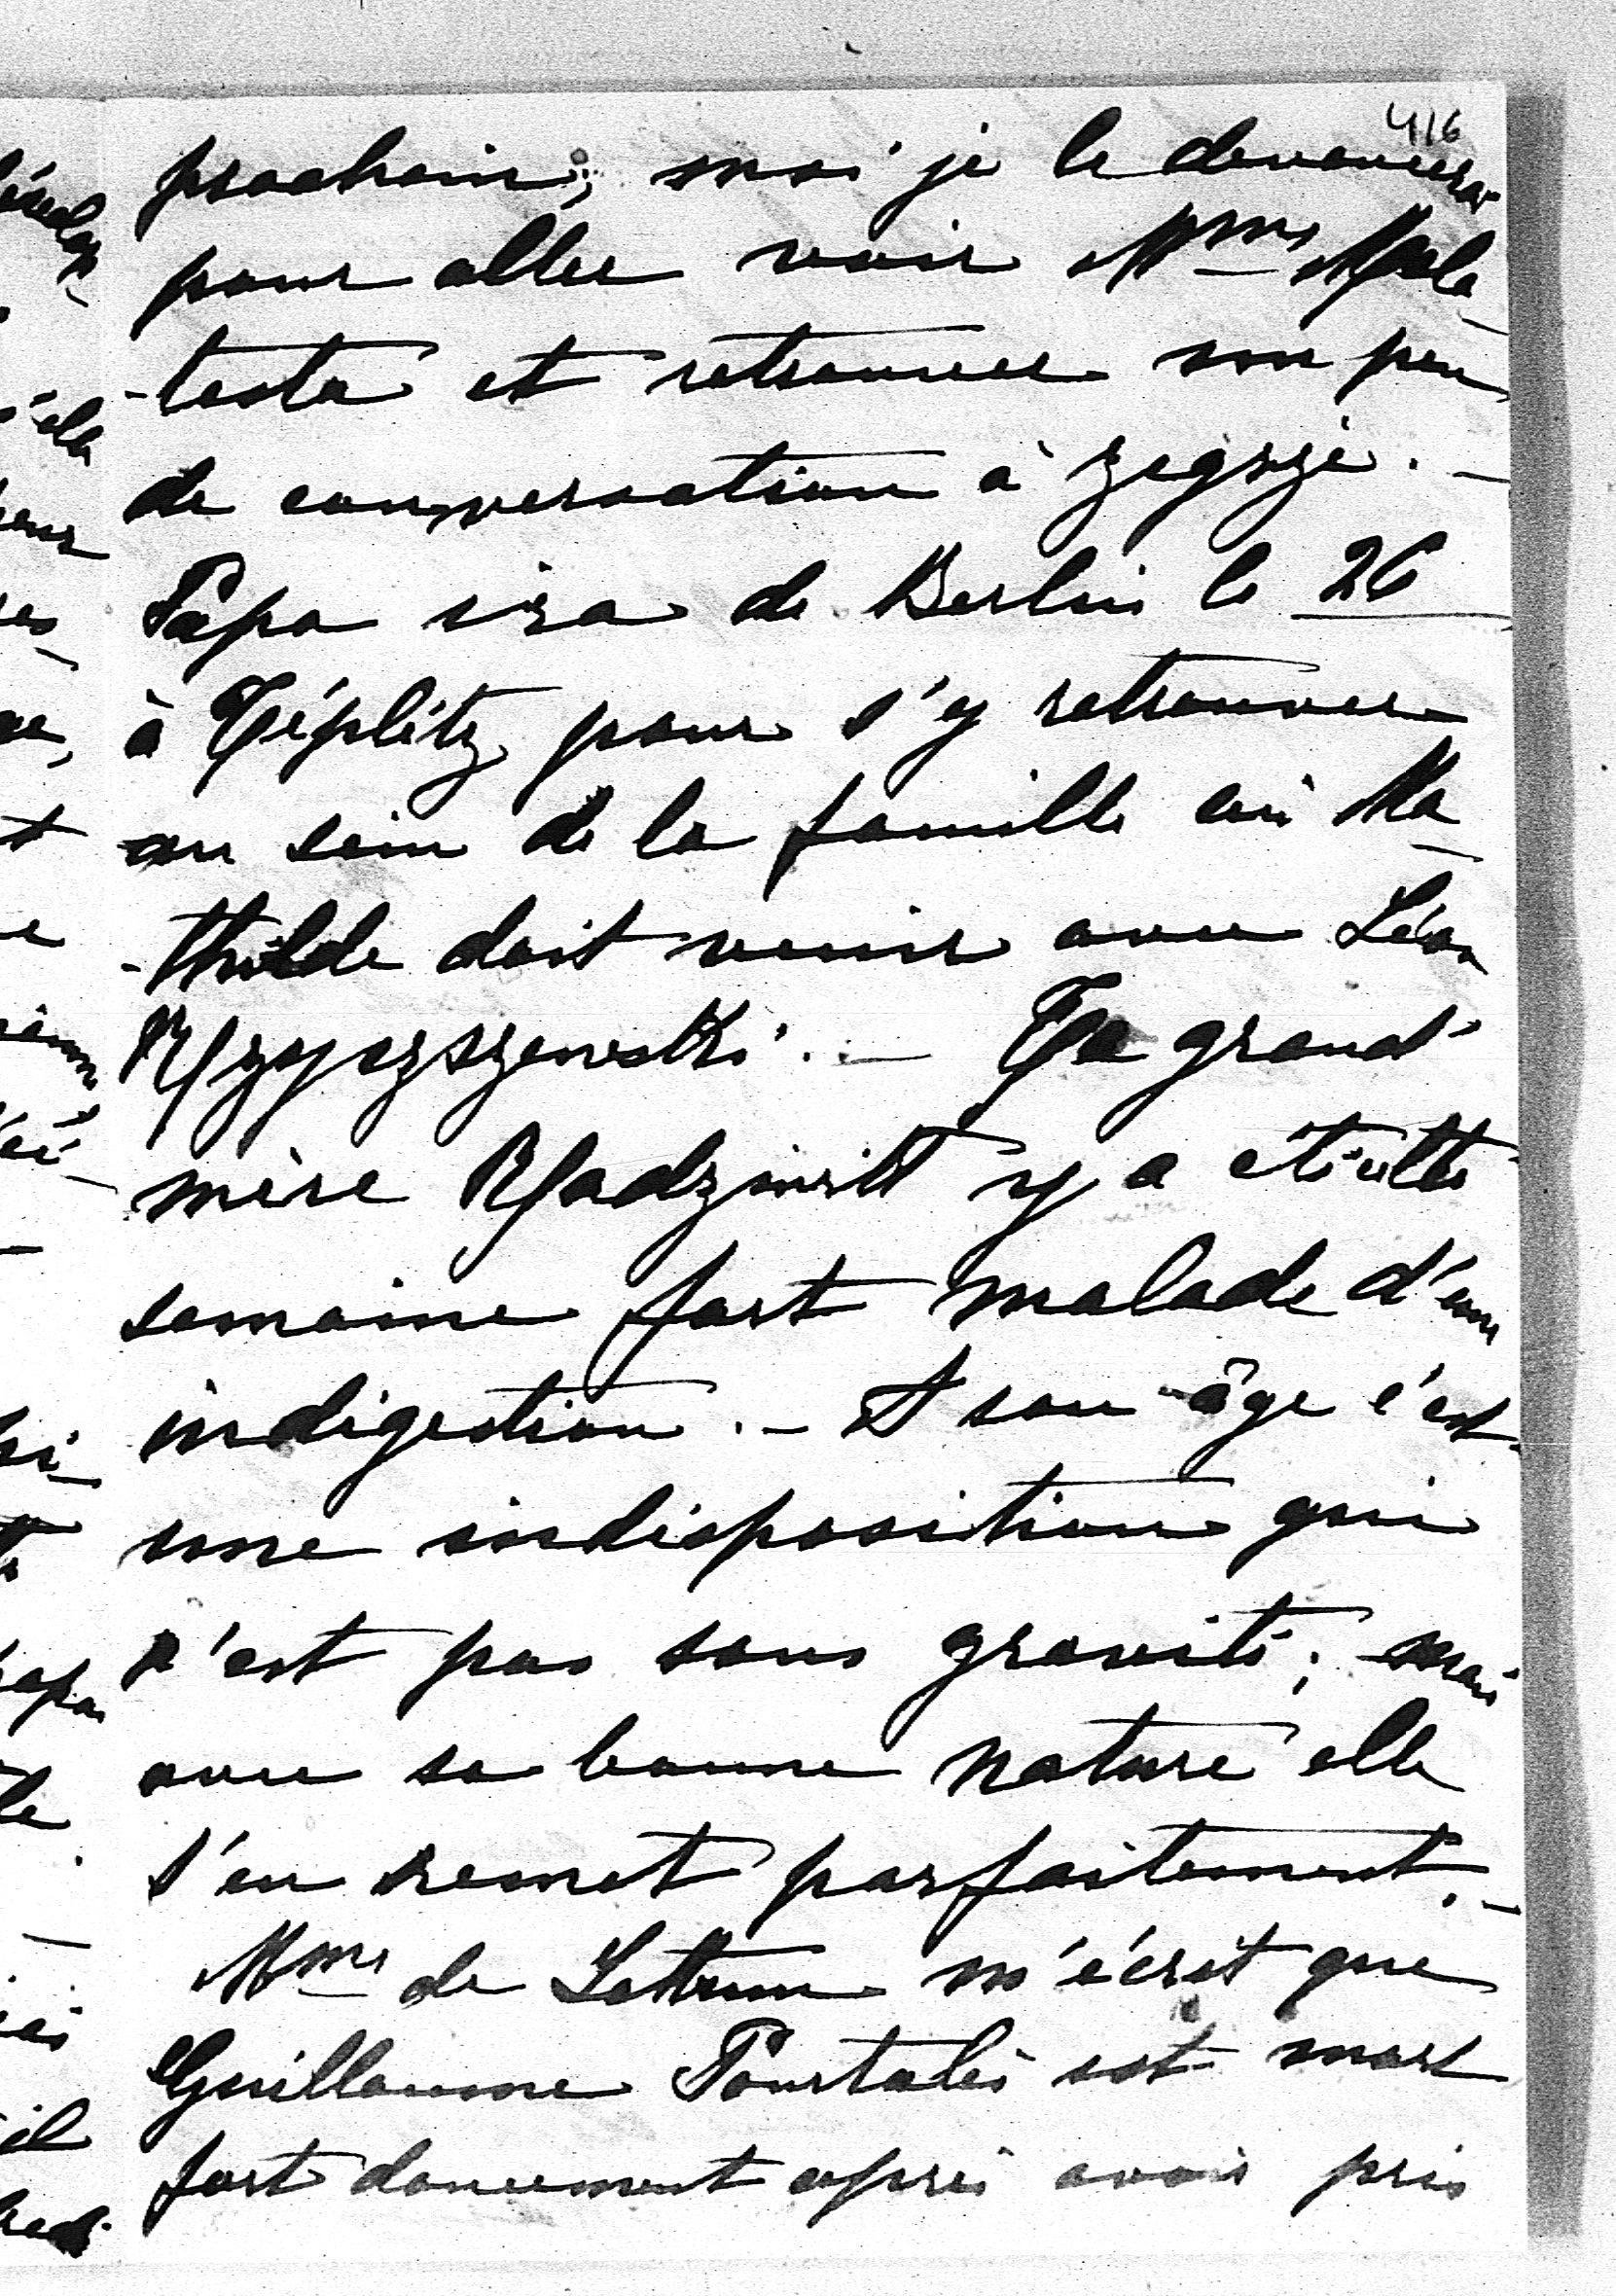 416
prochain; moi je le devancerai
pour aller voir Mme Mala
-testa et retrouver un peu
de conversation à Zegrzé. —
Papa ira de Berlin le 26
à Téplitz pour s'y retrouver
au sein de la famille où Ma
-thilde doit venir avec Léon
Rzyszczewski. — Ta grand'
mère Radziwill y a été cette
semaine fort malade d'une
indigestion. — A son âge c'est
une indisposition qui
n'est pas sans gravité; mais
avec sa bonne nature elle
s'en remet parfaitement. —
Mme de m'écrit que
Guillaume Pourtalès est mort
fort doucement après avoir pris